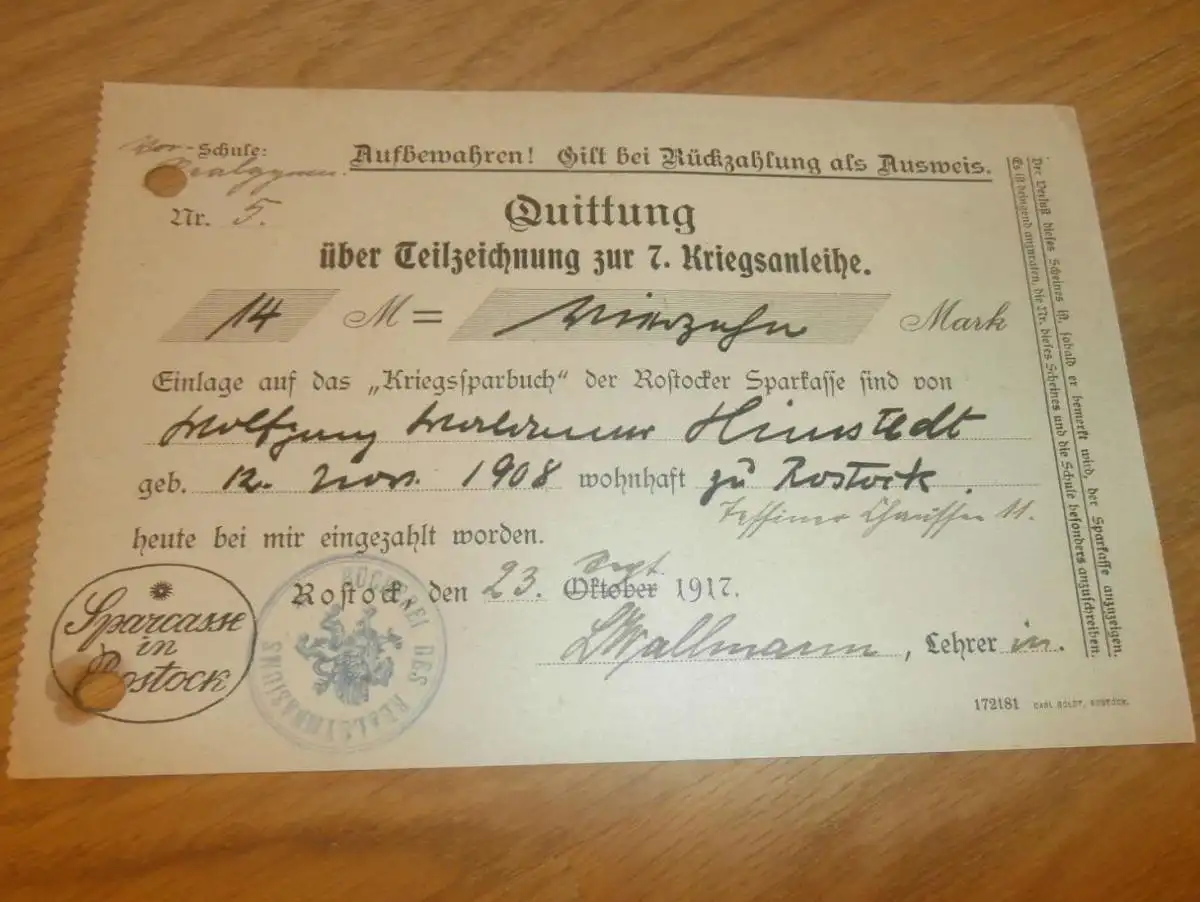 Vor-Schule:
Realgymn.
Nr. 5.
Aufbewahren! Gilt bei Rückzahlung als Ausweis.
Quittung
über Teilzeichnung zur 7. Kriegsanleihe.
14 M = Vierzehn Mark
Einlage auf das „Kriegssparbuch“ der Rostocker Sparkasse sind von
Wolfgang Waldemar Himstedt
geb. 12. Nov. 1908 wohnhaft zu Rostock.
Tessiner Chaussee 11.
heute bei mir eingezahlt worden.
Sept
Rostock, den 23. Oktober 1917.
LWallmann, Lehrer in.
Sparcasse
in
Rostock
BÜCHEREI DES REALGYMNASIUMS
172181 CARL BOLDT, ROSTOCK.
Der Verlust dieses Scheines ist, sobald er bemerkt wird, der Sparkasse anzuzeigen.
Es ist dringend anzuraten, die Nr. dieses Scheines und die Schule besonders anzuschreiben.